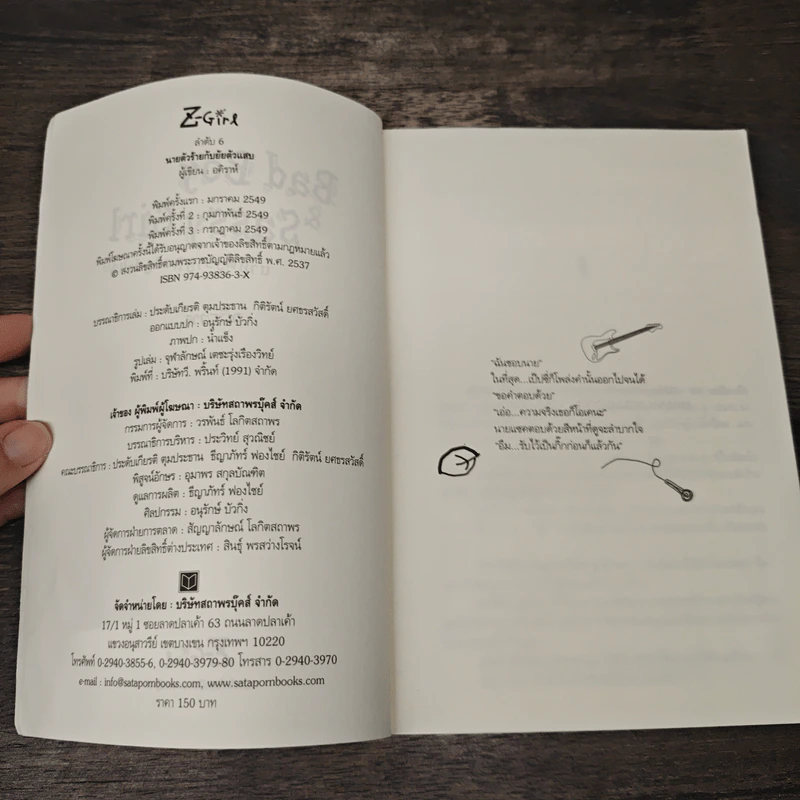 Z-Girl
ลำดับ 6
นายตัวร้ายกับยัยตัวแสบ
ผู้เขียน : อคิราห์
พิมพ์ครั้งแรก : มกราคม 2549
พิมพ์ครั้งที่ 2 : กุมภาพันธ์ 2549
พิมพ์ครั้งที่ 3 : กรกฎาคม 2549
พิมพ์โฆษณาครั้งนี้ได้รับอนุญาตจากเจ้าของลิขสิทธิ์ตามกฎหมายแล้ว
© สงวนลิขสิทธิ์ตามพระราชบัญญัติลิขสิทธิ์ พ.ศ. 2537
ISBN 974-93836-3-X
บรรณาธิการเล่ม : ประดับเกียรติ ตุมประธาน กิติรัตน์ ยศธรสวัสดิ์
ออกแบบปก : อนุรักษ์ บัวกิ่ง
ภาพปก : น้ำแข็ง
รูปเล่ม : จุฬาลักษณ์ เตชะรุ่งเรืองวิทย์
พิมพ์ที่ : บริษัทวี. พริ้นท์ (1991) จำกัด
เจ้าของ ผู้พิมพ์ผู้โฆษณา : บริษัทสถาพรบุ๊คส์ จำกัด
กรรมการผู้จัดการ : วรพันธ์ โลกิตสถาพร
บรรณาธิการบริหาร : ประวิทย์ สุวณิชย์
คณะบรรณาธิการ : ประดับเกียรติ ตุมประธาน ธีญาภัทร์ ฟองไชย์ กิติรัตน์ ยศธรสวัสดิ์
พิสูจน์อักษร : อุมาพร สกุลบัณฑิต
ดูแลการผลิต : ธีญาภัทร์ ฟองไชย์
ศิลปกรรม : อนุรักษ์ บัวกิ่ง
ผู้จัดการฝ่ายการตลาด : สัญญาลักษณ์ โลกิตสถาพร
ผู้จัดการฝ่ายลิขสิทธิ์ต่างประเทศ : สินธุ์ พรสว่างโรจน์
จัดจำหน่ายโดย : บริษัทสถาพรบุ๊คส์ จำกัด
17/1 หมู่ 1 ซอยลาดปลาเค้า 63 ถนนลาดปลาเค้า
แขวงอนุสาวรีย์ เขตบางเขน กรุงเทพฯ 10220
โทรศัพท์ 0-2940-3855-6, 0-2940-3979-80 โทรสาร 0-2940-3970
e-mail : info@satapornbooks.com, www.satapornbooks.com
ราคา 150 บาท
"ฉันชอบนาย"
ในที่สุด...เป็นซี่ก็โพล่งคำนั้นออกไปจนได้
"ขอคำตอบด้วย"
"เอ่อ...ความจริงเธอก็โอเคนะ"
นายแซคตอบด้วยสีหน้าที่ดูจะลำบากใจ
"อืม...รับไว้เป็นกิ๊กก่อนก็แล้วกัน"